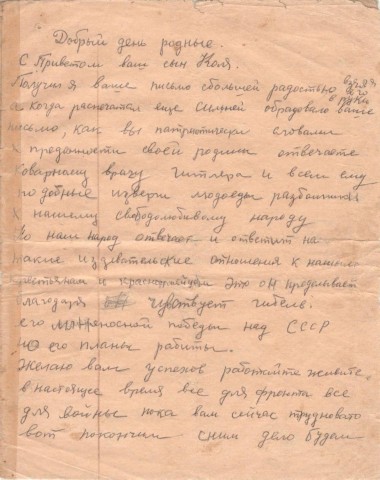 Добрый день родные.
С Приветом ваш сын Коля.
Получил я ваше письмо сбольшей радостью взял я его в руки
а когда распечатал еще сильней обрадовало ваше
письмо, как вы патриотически словами
к преданности своей родины отвечаете
коварному врагу гитлера и всем ему
подобные извери людоеды разбойники
к нашему свободолюбивому народу
Но наш народ отвечает и ответит на
такие издевательские отношения к нашим
крестьянам и красноармейцам это он проделывает
благодаря чувствует гибель.
его молненосной победы над СССР
но его планы разбиты.
Желаю вам успехов работайте живите
в настоящее время все для фронта все
для войны пока вам сейчас трудновато
вот покончим сним дело будем